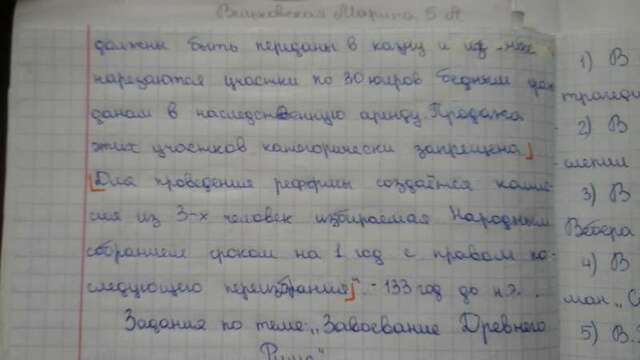 Марина 5 А
должен быть переданы в казну и из неё
передаются участки по 30 югеров бедным гра
данам в наследственную аренду. Продажа
этих участков категорически запрещена
Для проведения реформы создаётся комис
сия из 3-х человек избираемая Народным
собранием сроком на 1 год с правом по-
следующего переизбрания". - 133 год до н.э.
Задания по теме „Завоевание Древнего
Рима"
1) В
2) В
3) В
4) В
5) В